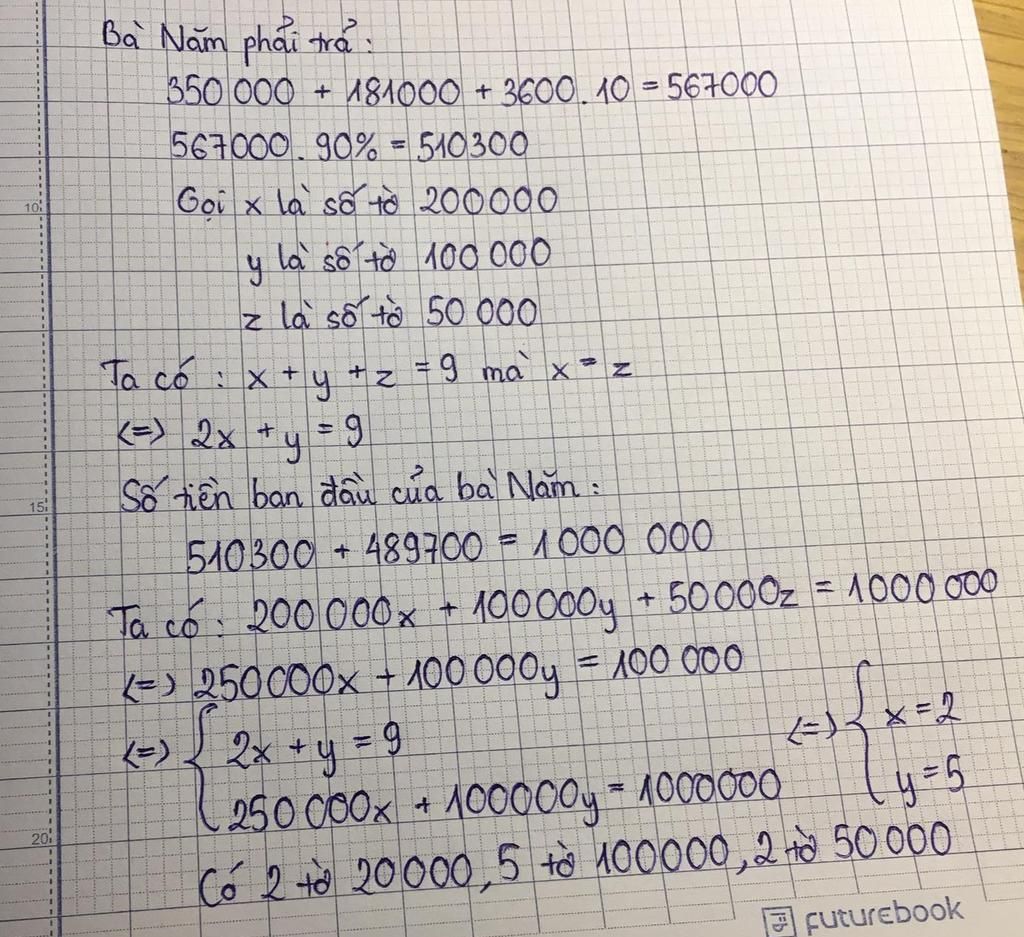 Bà Năm phải trả:
350 000 + 181000 + 3600.10 = 567000
567000. 90% = 510300
10
Gọi x là số tờ 200000
y là số tờ 100 000
z là số tờ 50 000
Ta có : x + y + z = 9 mà x = z
<=> 2x + y = 9
15
Số tiền ban đầu của bà Năm:
510300 + 489700 = 1000 000
Ta có: 200 000x + 100000y + 50000z = 1000 000
<=> 250000x + 100 000y = 100 000
<=> { 2x + y = 9 <=> { x = 2
250 000x + 100000y = 1000000 y = 5
20
Có 2 tờ 20000, 5 tờ 100000, 2 tờ 50 000
FUTUREBOOK